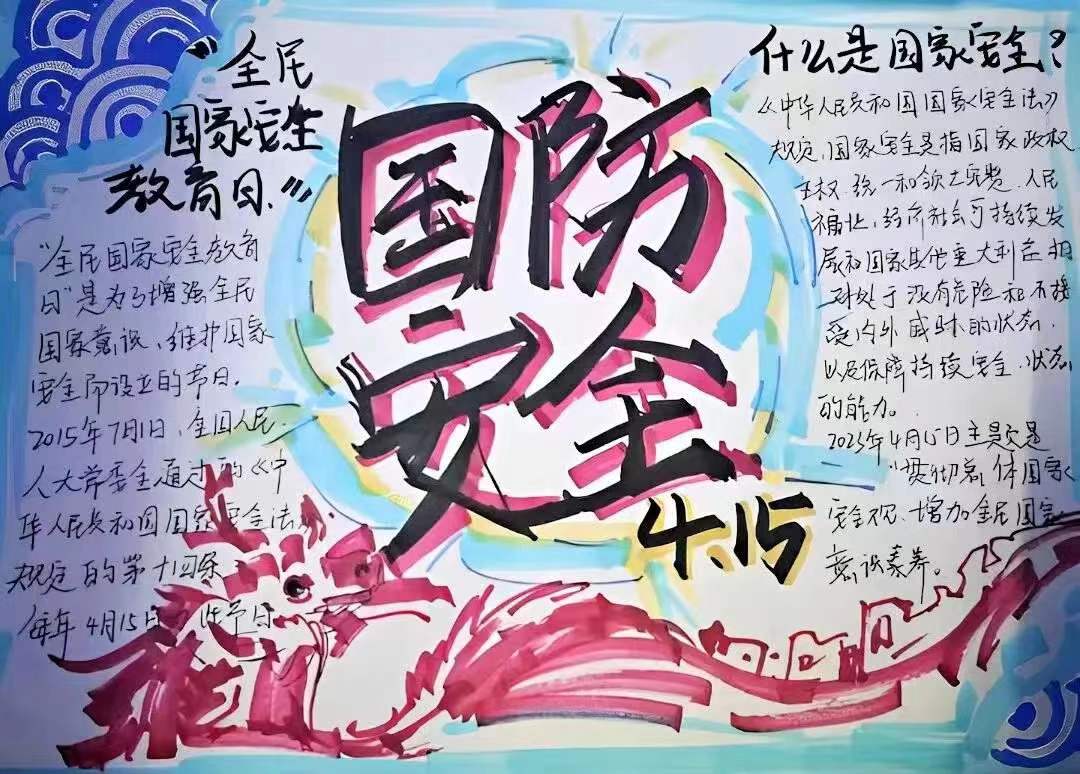 “全民
国家安全
教育日”
“全民国家安全教育
日”是为了增强全民
国家意识、维护国家
安全而设立的节日。
2015年7月1日,全国人民
人大常委全通过的《中
华人民共和国国家安全法》
规定的第十四条
每年4月15日 节日
国防
安全
4.15
什么是国家安全?
《中华人民共和国国家安全法》
规定,国家安全是指国家政权
主权、统一和领土完整、人民
福祉,经济社会可持续发
展和国家其他重大利益相
对处于没有危险和不接
受内外威胁的状态,
以及保障持续安全状态
的能力。
2023年4月15日主题是
“贯彻 体国家
安全观、增加全民国家
意识素养。